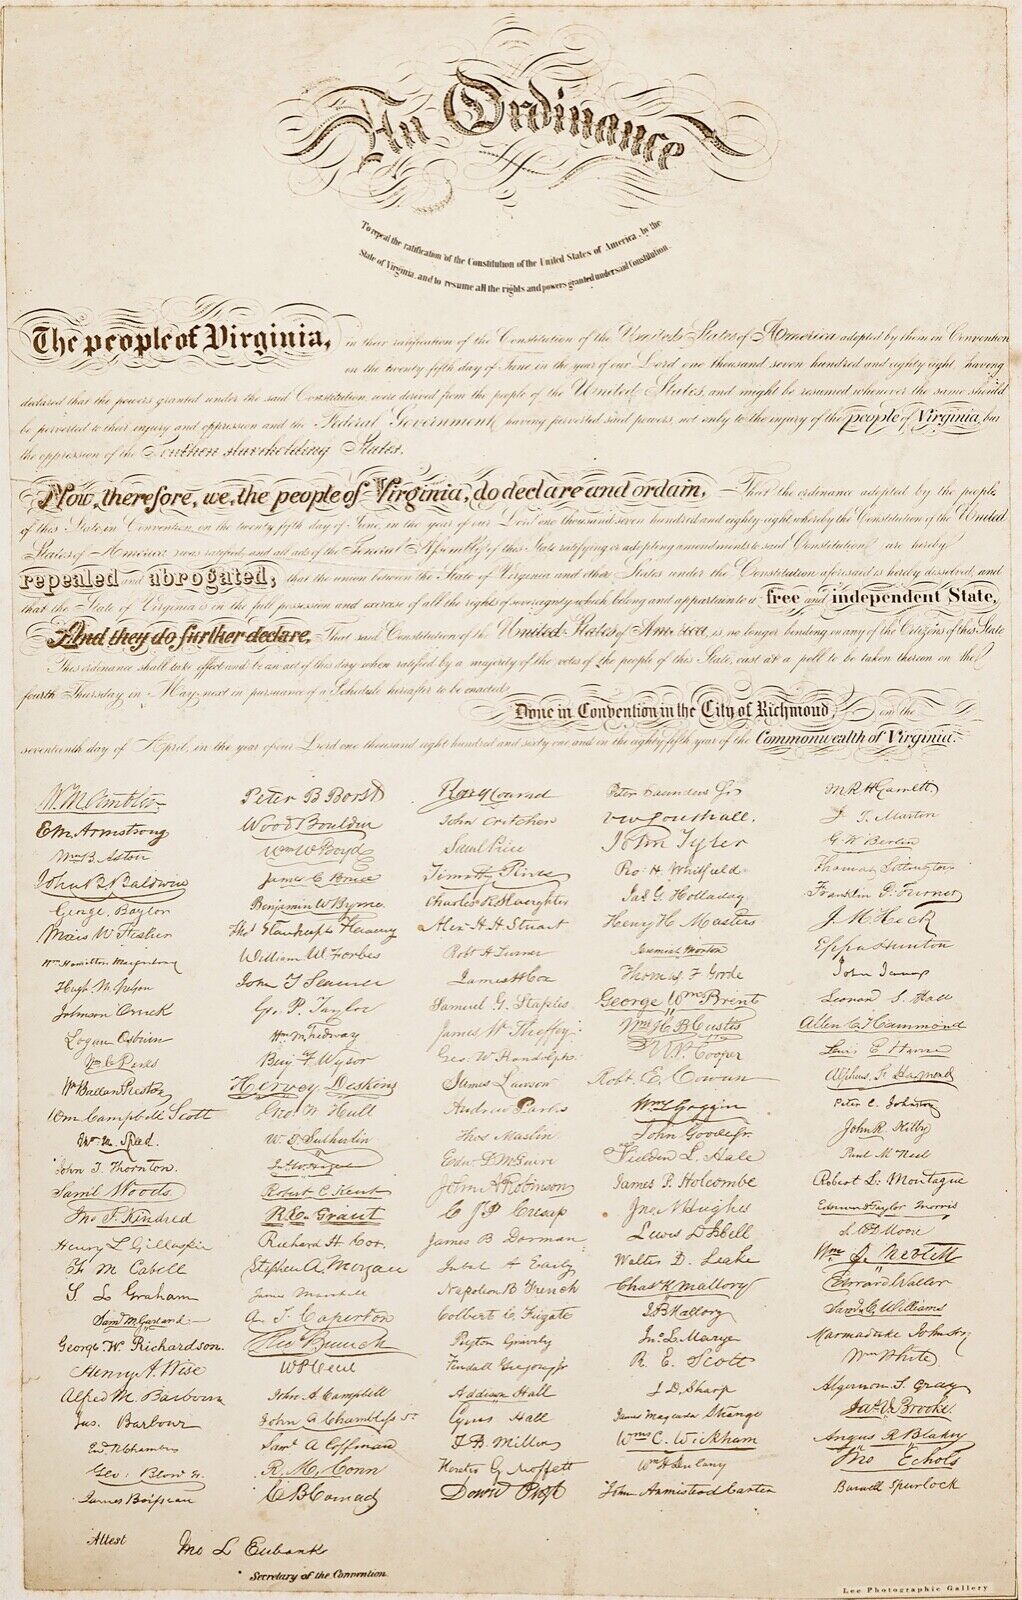 An Ordinance
To repeal the ratification of the Constitution of the United States of America, by the
State of Virginia, and to resume all the rights and powers granted under said Constitution.
The people of Virginia, in their ratification of the Constitution of the United States of America adopted by them in Convention
on the twenty fifth day of June in the year of our Lord one thousand seven hundred and eighty eight, having
declared that the powers granted under the said Constitution were derived from the people of the United States, and might be resumed whensoever the same should
be perverted to their injury and oppression and the Federal Government, having perverted said powers, not only to the injury of the people of Virginia, but
the oppression of the Southern slaveholding States.
Now, therefore, we, the people of Virginia, do declare and ordain, That the ordinance adopted by the people
of this State in Convention, on the twenty fifth day of June, in the year of our Lord one thousand seven hundred and eighty eight whereby the Constitution of the United
States of America was ratified, and all acts of the General Assembly of this State ratifying or adopting amendments to said Constitution, are hereby
repealed and abrogated; that the union between the State of Virginia and other States under the Constitution aforesaid is hereby dissolved, and
that the State of Virginia is in the full possession and exercise of all the rights of sovereignty which belong and appertain to a free and independent State,
And they do further declare, That said Constitution of the United States of America, is no longer binding on any of the Citizens of this State
This ordinance shall take effect and be an act of this day when ratified by a majority of the votes of the people of this State, cast at a poll to be taken thereon on the
fourth Thursday in May next in pursuance of a Schedule hereafter to be enacted.
Done in Convention in the City of Richmond, on the
seventeenth day of April, in the year of our Lord one thousand eight hundred and sixty one and in the eighty fifth year of the Commonwealth of Virginia.
W. M. Ambler
E M. Armstrong
Wm B. Aston
John B. Baldwin
George. Baylor
Hugh. M. Nelson
Johnson Orrick
Logan Osburn
Wm Ballard Preston
Wm Campbell Scott
John T. Thornton.
Saml Woods
Jno. J. Kindred
Henry L Gillaspie
F M Cabell
S. L Graham
Saml M Garland
George W. Richardson.
Henry A. Wise
Alfred M. Barbour
Jas. Barbour
Edw. N Chambers
Geo: Blow Jr.
James Boisseau
Peter B Borst
Wood Bouldin
Wm W Boyd
James C Bruce
Benjamin W Byrne
William W Forbes
Geo. P. Tayloe
Wm. M. Tredway
Benj F Wysor
Hervey Deskins
W T Sutherlin
Robert C Kent
R. E. Grant
Richard H Cox.
Stephen A. Morgan
James Marshall
A. T. Caperton
John A. Campbell
John A Chambliss Sr
Saml A Coffman
R. M. Conn
C B Conrad
Robt Y Conrad
John Critcher
Saml Price
Timothy Rives
Charles R Slaughter
Alex H H Stuart
Robt H Turner
James H Cox
Samuel G. Staples
James W Sheffey
Geo. W Randolph
James Lawson
Andrew Parks
Thos Maslin
Edw D McGuire
C J P Cresap
James B Dorman
Jubal A Early
Napoleon B French
Colbert C. Fugate
Peyton Gravely
Addison Hall
Cyrus Hall
Horatio G Moffett
Peter Saunders Sr
V W Southall.
John Tyler
Ro: H Whitfield
Jas G. Holladay
Henry H. Masters
Jeremiah Morton
Thomas F Goode
George Wm Brent
Wm H B Custis
Robt E. Cowan
Wm L Goggin
John Goode Jr.
Fielden L. Hale
James P. Holcombe
Jno. N Hughes
Lewis D Isbell
Walter D. Leake
Chas K Mallory
Jno L Marye
R. E. Scott
J D. Sharp
James Magruder Strange
Wms C. Wickham
Wm H Dulany
John Armistead Carter
M R H Garnett
J. T. Martin
G. W Berlin
Franklin P. Turner
J. M. Heck
Eppa Hunton
Leonard S. Hall
Allen C Hammond
Lewis E Harvie
Alpheus F. Haymond
Peter C. Johnston
John R. Kilby
Paul M Neil
Robert L. Montague
Edmund Taylor Morris
Saml C Williams
Marmaduke Johnson
Wm White
Algernon S. Gray
Jas V Brooke.
Angus R Blakey
Jno Echols
Burwell Spurlock
Attest
Jno L Eubank
Secretary of the Convention
Lee Photographic Gallery